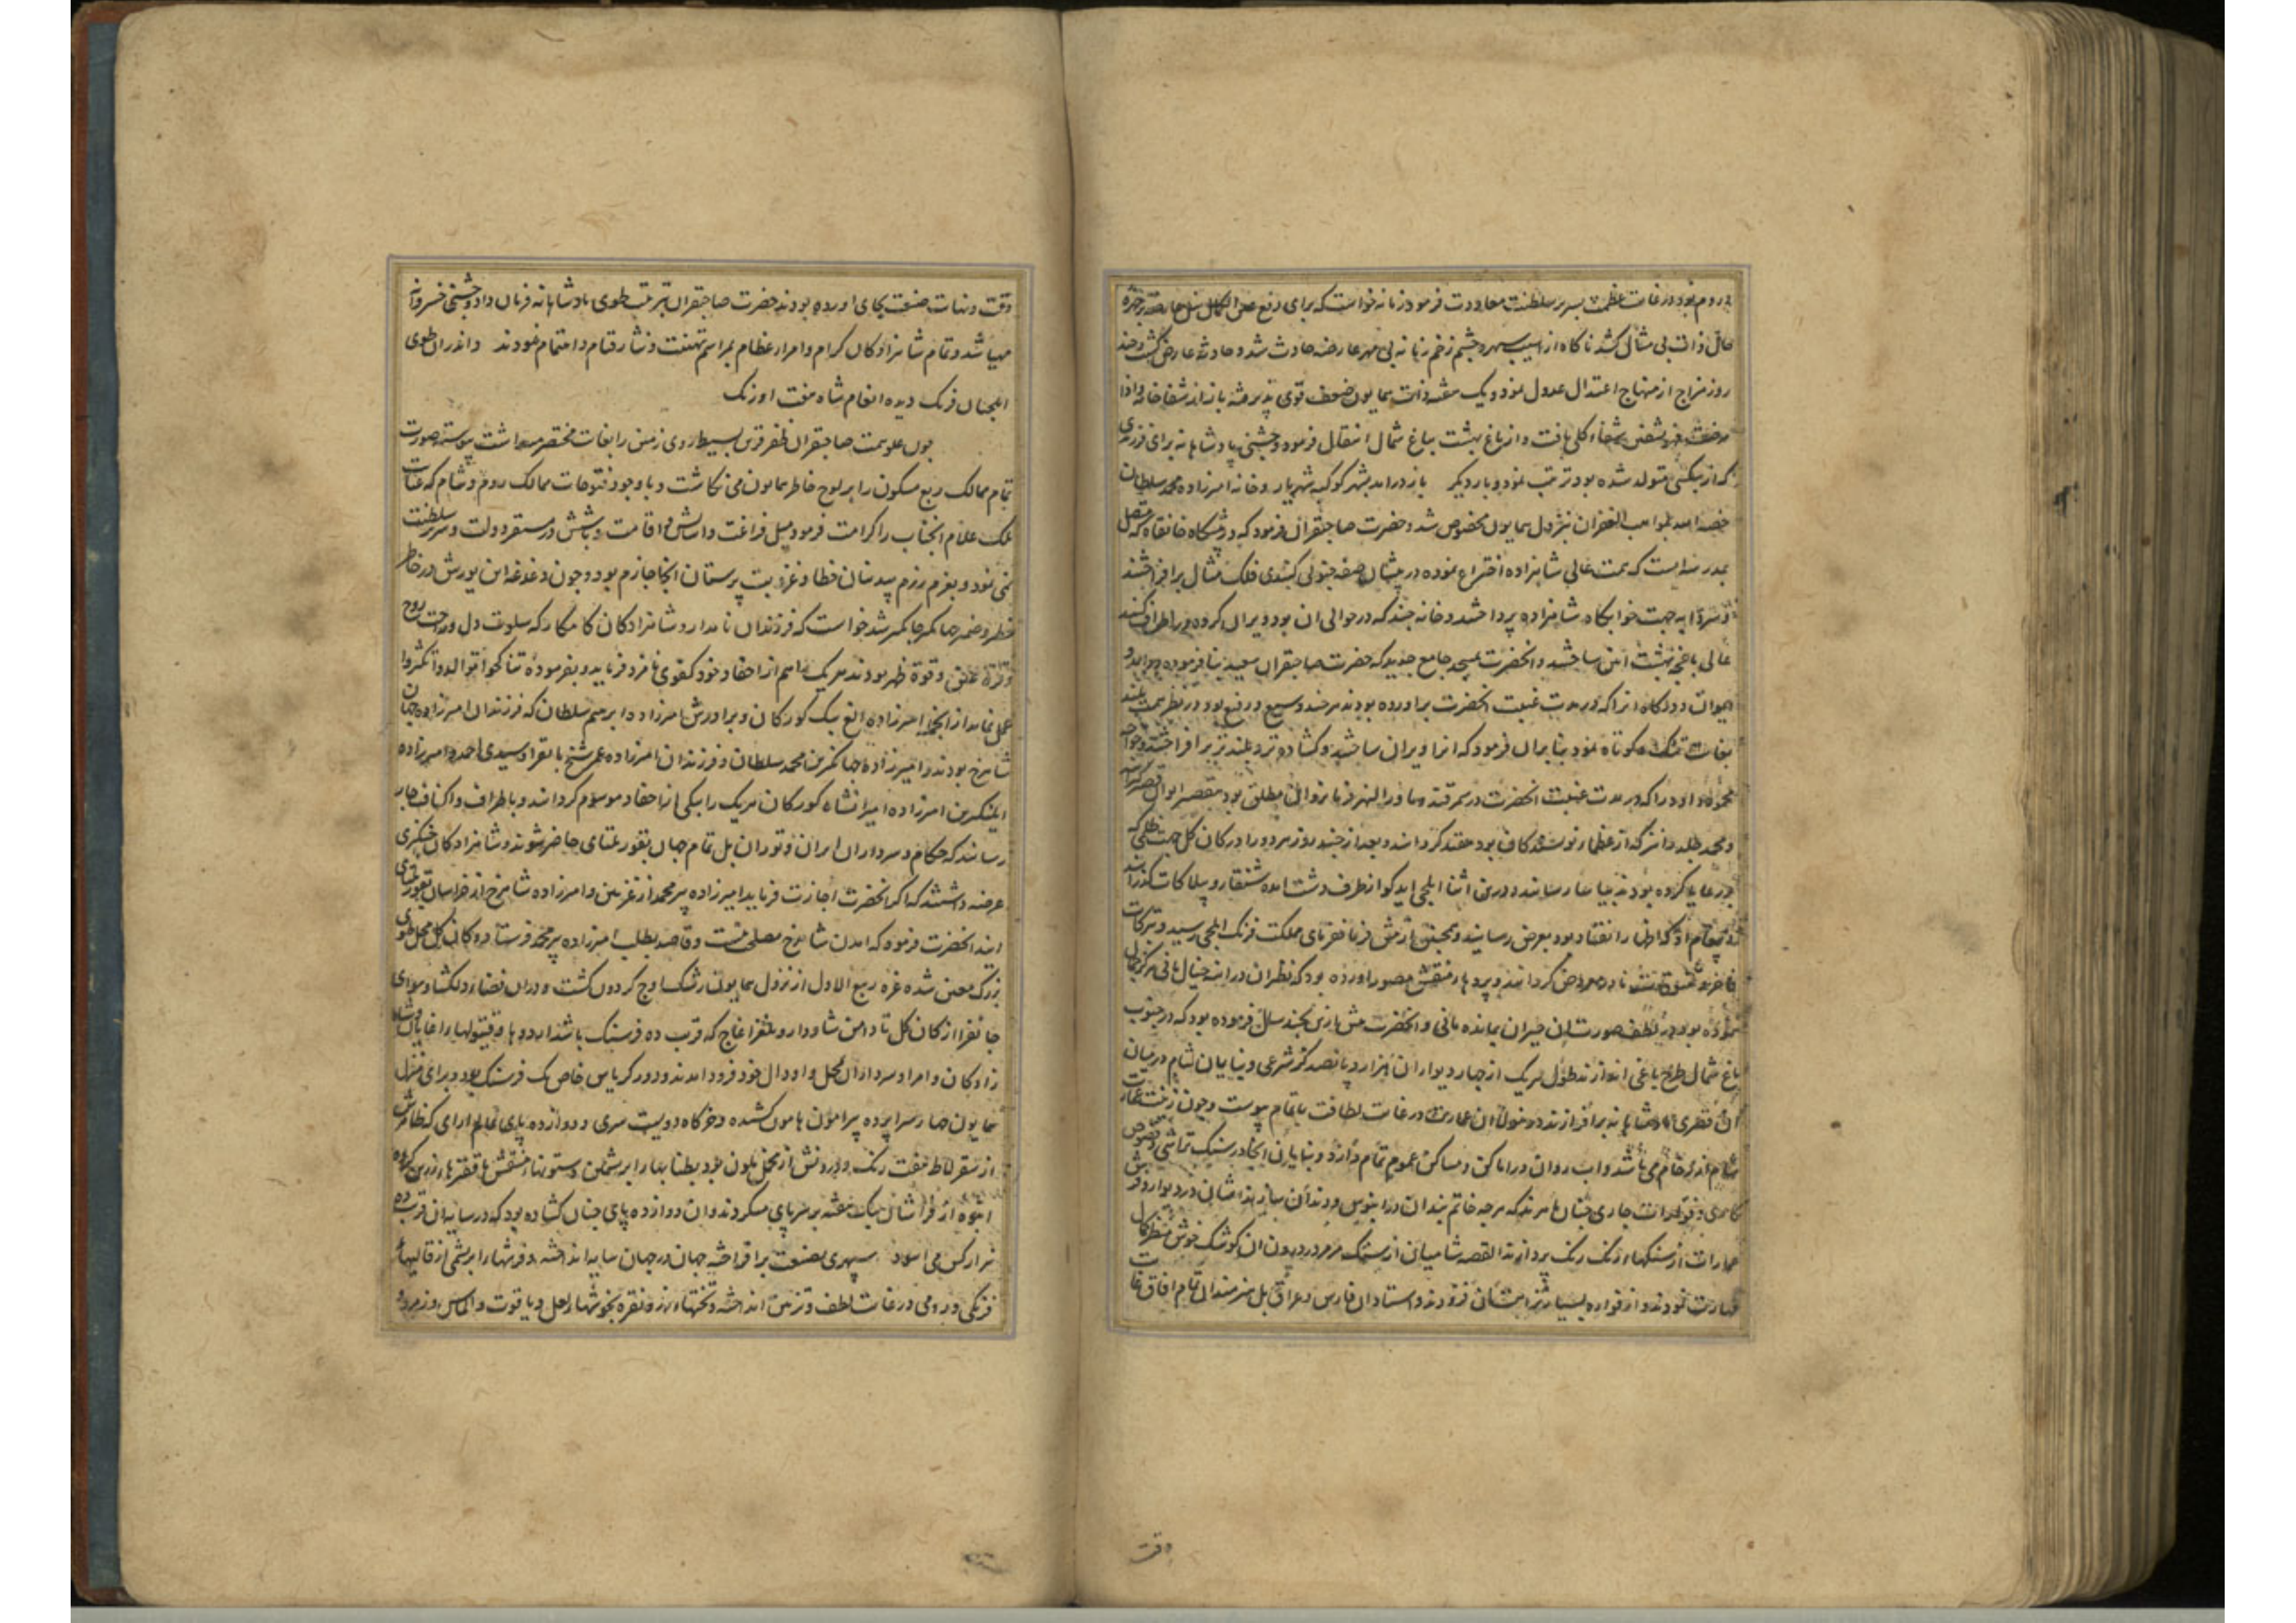 در غایت عظمت بسریر سلطنت معاودت فرمود زمانه خواست که برای دفع عین الکمال
حال ذات بی مثالی کشد ناکاه از اسیب سپهر و چشم زخم زمانه بی مهر عارضه حادث شد و حادثه عارض کشت و چند
روز مزاج از منهاج اعتدال عدول نمود و یک هفته ذات همایون ضعف قوی پذیرفته باز از شفاخانه و اذا
مرضت فهو یشفین شفاء کلی یافت و از باغ بهشت بباغ شمال انتقال فرمود و جشنی پادشاهانه برای فرزندی
که از بیکسی متولد شده بود ترتیب نمود و بار دیکر باز درامد بشهر کوکبه شهریار و خانه امیرزاده محمد سلطان
خصه الله بمواهب الغفران بنزول همایون مخصوص شد و حضرت صاحبقران فرمود که در پیشکاه خانقاه که متصل
بمدرسه است که همت عالی شاهزاده اختراع نموده در پیشان صفه جنوبی کنبدی فلک مثال برافراشتند
به جهت خوابکاه شاهزاده پرداختند و خانه چند که در حوالی ان بود ویران کرده
عالی باغچه بهشت ائین ساختند و انحضرت بمسجد جامع جدید که حضرت صاحبقران سعید بنا فرموده درامد و
ایوان و درکاه انرا که در مدت غیبت انحضرت براورده بودند هرچند وسیع و رفیع بود در نظر همت بلند
بغایت تنک و کوتاه نمود بنابران فرمود که انرا ویران ساختند و کشاده تر و بلندتر برافراختند و خواجه
محمود داود را که در مدت غیبت انحضرت در سمرقند و ماورالنهر فرمانروای مطلق بود
و محمد جلد را نیز که از عظمای نویسندکان بود مقید کردانیدند و بعد از چند روز هر دو را در کان کل جهت ظلمی که
بر رعایا کرده بودند بیاسا رسانیدند و درین اثنا ایلچی ایدکو از طرف دشت امده شنقار و بیلاکات کذرانید
و پیغام او که اظهار انقیاد بود بعرض رسانید و همچنین از پیش فرمانفرمای مملکت فرنک ایلچی رسید و تبرکات
فاخر و تنسوقات نادره معروض کردانید و پردهاء منقش مصور اورده بود که نظران در اینه خیال مانی هرکز جمال
ننموده بود در لطف صورت ان حیران بمانده مانی و انحضرت پیش ازین بچند سال فرموده بود که در جنوب
باغ شمال طرح باغی اندازند طول هریک از چهار دیوار ان هزار و پانصد کز شرعی و بنایان شام در میان
ان قصری پادشاهانه برافرازند درینولا ان عمارت در غایت لطافت باتمام پیوست و چون زینت عمارات
شام اکثر رخام می باشد و اب روان در اماکن و مساکن عموم تمام دارد و بنایان انجا در سنک تراشی و خصوص
کاهری و فوارات جاری چنان ماهرند که هرچه خاتم بندان در ابنوس و دندان سازند ایشان در دیوار و فرش
عمارات از سنکهاء رنک رنک پردازند القصه شامیان از سنک مرمر در درون ان کوشک خوش منظر کمال
مهارت نمودند و از فواره بسیار نیز بر ان افزودند و استادان فارس و عراق بل هنرمندان تمام افاق غایت
دقت
دقت و نهایت صنعت بجای اورده بودند حضرت صاحبقران بترتیب طوی پادشاهانه فرمان داد و جشنی خسروانه
مهیا شد و تمام شاهزادکان کرام و امراء عظام بمراسم تهنیت و نثار قیام و اهتمام نمودند و اندران طوی
ایلچیان فرنک دیده انعام شاه هفت اورنک
چون علو همت صاحبقران ظفرقرین بسیط روی زمین را بغایت مختصر میداشت پیوسته صورت
تمام ممالک ربع مسکون را بر لوح خاطر همایون می نکاشت و با وجود فتوحات ممالک روم و شام که عنایت
ملک علام انجناب را کرامت فرمود میل فراغت و اسایش و اقامت و نمایش در مستقر دولت و سریر سلطنت
نمی نمود و بعزم رزم بیدینان خطا و غزو بت پرستان انجا جازم بود و چون دغدغه این یورش در خاطر
خطیر و ضمیر جهانکیر جایکیر شد خواست که فرزندان نامدار و شاهزادکان کامکار که سلوت دل و راحت روح
و قره عین و قوة ظهر بودند هریک را هم از احفاد خود کفوی نامزد فرماید و بفرموده تناکحوا توالدوا تکثروا
عمل نماید از انجمله امیرزاده الغ بیک کورکان و برادرش امیرزاده ابرهیم سلطان که فرزندان امیرزاده جهان
شاهرخ بودند و امیرزاده جهانکیر بن محمد سلطان و فرزندان امیرزاده عمر شیخ بایقرا و سیدی احمد و امیرزاده
ایلنکر بن امیرزاده امیرانشاه کورکان هریک را بیکی از احفاد موسوم کردانید و باطراف و اکناف جار
رسانید که حکام و سرداران ایران و توران بل تمام جهان بقورلتای حاضر شوند و شاهزادکان
عرضه داشتند که اکر انحضرت اجازت فرماید امیرزاده پیرمحمد از غزنین و امیرزاده شاهرخ از خراسان بقورلتای
ایند انحضرت فرمود که امدن شاهرخ مصلحت نیست و قاصد بطلب امیرزاده پیرمحمد فرستاد و کان کل محل طوی
بزرک معین شده غره ربیع الاول از نزول همایون رشک اوج کردون کشت و دران فضاء دلکشا و هوای
جانفزا از کان کل تا دامن شاودار و یلغز اغاج که قریب ده فرسنک باشد
زادکان و امرا و سرداران بمحل و اودال خود فرود امدند و دور کریاس خاص یک فرسنک بود و برای منزل
همایون چهار سراپرده پیرامون هامون کشیده و خرکاه دویست سری و دوازده پای عالم ارای که ظاهرش
از سقرلاط هفت رنک و درونش از مخمل ملون بود بطنابهاء ابریشمین و ستونهاء منقش با قبهاء زرین کروه
انبوه از فراشان بیک هفته بر سر پای میکردند و ان دوازده پای چنان کشاده بود که در سایه ان قریب ده
هزار کس می اسود سپهری بصنعت برافراخته جهان در جهان سایه انداخته و فرشهاء ابریشمی از قالیهاء
فرنکی و رومی در غایت لطف و تزیین انداخته و تختهاء زر و نقره بخوشهاء لعل و یاقوت و الماس و زمرد و